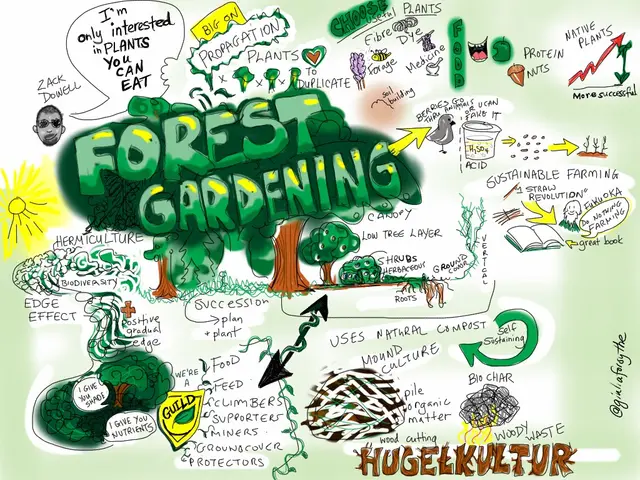 I'm
only interested
in PLANTS
YOU
CAN
EAT
ZACK
DOWELL
BIG ON
PROPAGATION
PLANTS
x
TO
DUPLICATE
CHOOSE
useful PLANTS
Fibre
Dye
Forage
Medicine
soil
building
FOOD
PROTEIN
NUTS
NATIVE
PLANTS
More successful
FOREST
GARDENING
BERRIES GO
THRU ANIMALS
OR U CAN
FAKE IT
H2SO4
ACID
SUSTAINABLE FARMING
1 STRAW
REVOLUTION
FUKUOKA
DO NOTHING
FARMING
great book
CANOPY
LOW TREE LAYER
SHRUBS
HERBACEOUS
GROUND
COVER
VERTICAL
ROOTS
HERMICULTURE
BIODIVERSITY
EDGE
EFFECT
+
positive
gradual
edge
SUCCESSION
→ plan
+ plant
I GIVE
YOU
SHADE
I GIVE YOU
NUTRIENTS
WE'RE
A
GUILD
FOOD
FEED
CLIMBERS
SUPPORTERS
MINERS
GROUNDCOVER
PROTECTORS
USES NATURAL COMPOST
Self
Sustaining
MOUND
CULTURE
pile
organic
matter
wood cutting
BIO CHAR
WOODY WASTE
HUGELKULTUR
@giuliaforsythe